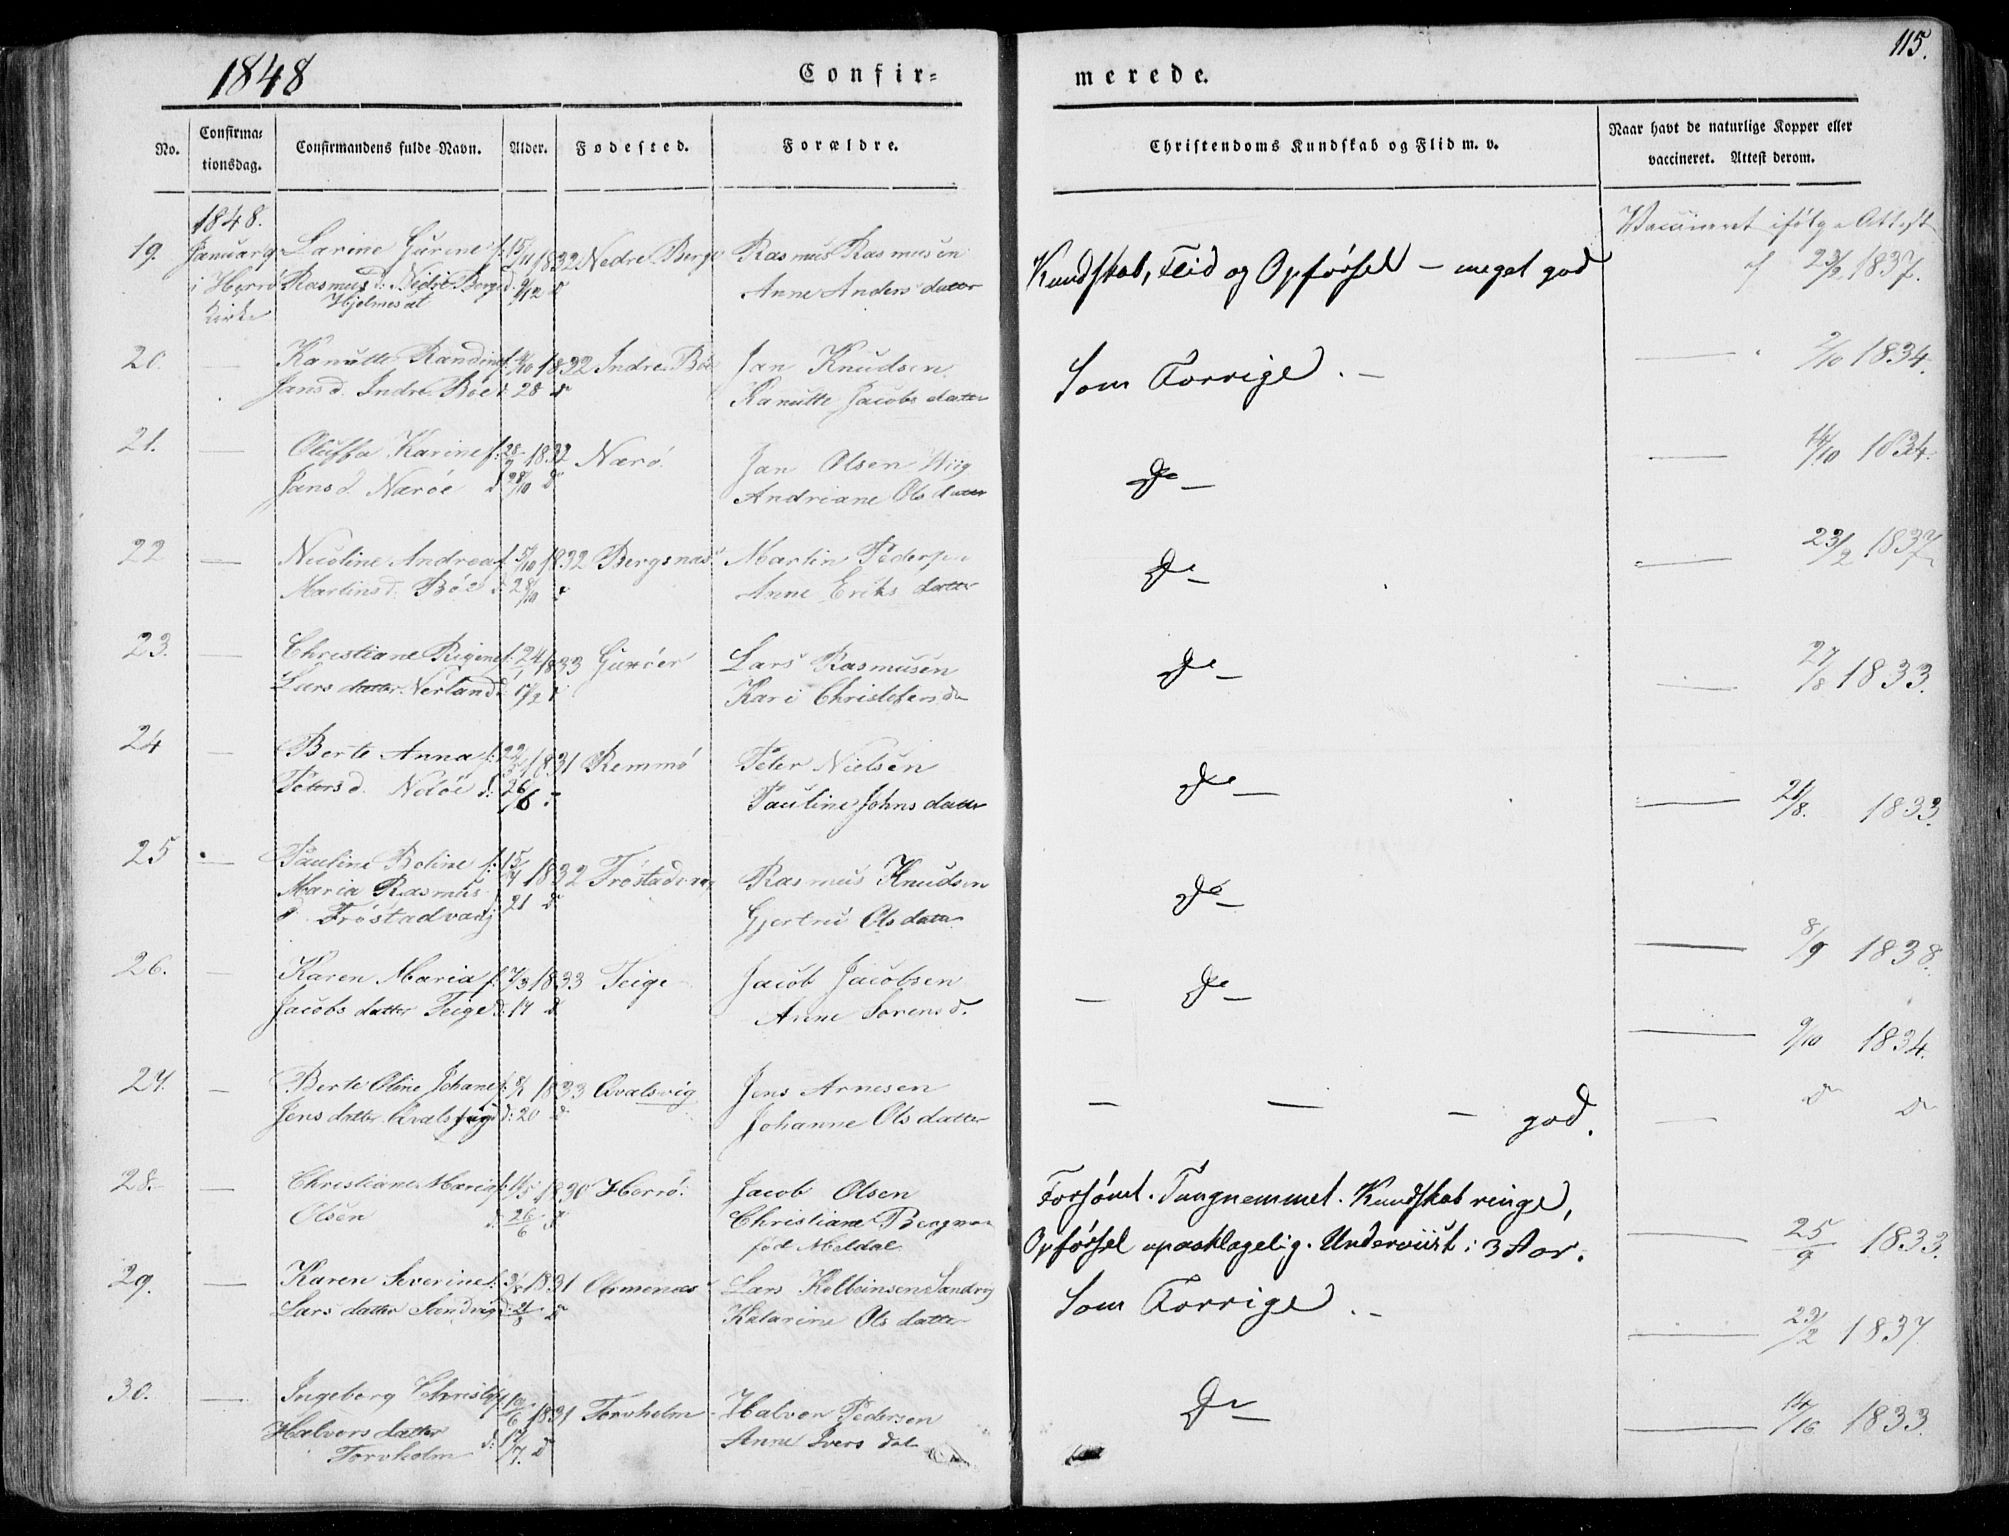 1848
Confir=
merede.
115.
No.
Confirma=
tionsdag.
Confirmandens fulde Navn.
Alder.
Fødested.
Forældre.
Christendoms Kundskab og Flid m. v.
Naar havt de naturlige Kopper eller
vaccineret. Attest derom.
1848.
19. Januar Larine Gurine f: 15/11 1832 Nedre Berge Rasmus Rasmusen Kundskab, Flid og Opførsel – meget god Vaccineret ifølge Attest
i Herrø Rasmus d: Nedre Berge d 9/12 d° Anne Anders datter af 23/2 1837.
Kirke Hjelmesæt
20. — Kanutte Randine f. 4/10 1832 Indre Bøe Jan Knudsen Som Forrige. – — 2/10 1834.
Jans d. Indre Bøe d: 28 d° Kanutte Jacobs datter
21. — Oluffa Karine f: 28/9 1832 Nærø Jan Olsen Wiig D° — — 14/10 1834.
Jans d. Nærøe d 28/10 d° Andriane Ols datter
22 — Nicoline Andrea f. 5/10 1832 Bergsnæs Martin Pedersen D° — — 23/2 1837
Martins d. Bøe d 28/10 d° Anne Eriks datter
23. — Christiane Rigine f: 24/1 1833 Gurøer Lars Rasmusen D° — — 27/8 1833.
Lars datter Nerland d: 17/2 d° Kari Christofers da
24 — Berte Anna f: 22/5 1831 Remmø Peter Nielsen D° — — 21/8. 1833.
Peters d. Nøløe d: 26/6 - Pauline Johns datter
25 — Pauline Boline f: 15/4 1832 Frøstadvaag Rasmus Knudsen D° — — 8/9 1838.
Maria Rasmus d: 21 d°
d Frøstadvaag Gjertru Ols datter
26. — Karen Maria f. 7/3 1833 Teige Jacob Jacobsen — D° — — 9/10 1834.
Jacobs datter Teige d: 14 d° Anne Sørens d.
27. — Berte Oline Johane f: 8/1 1833 Qvalsvig Jens Arnesen — — — god. — d° d°
Jens datter Qvalsvig d: 20 d° Johanne Ols datter
28. — Christiane Maria f: 11/5 1830 Herrø. Jacob Olsen Forsømt. Tungnemmet. Kundskab ringe,
Olsen d: 26/6 d° Christiane Bergnan Opførsel upaaklagelig. Underviist i 3 Aar. — 25/9 1833.
fød Meldal
29. — Karen Severine f. 3/5 1831 Ormenæs Lars Kolbeinsen Sandvig Som Forrige. – — 23/2 1837
Lars datter Sandvig d: d° Katarine Ols datter
30. — Ingeborg Christofa f. 10/6 1831 Torvholm Halvor Pedersen D° — — 14/16 1833.
Halvors datter d: 17/7. d° Anne Ivers dat
Torvholm